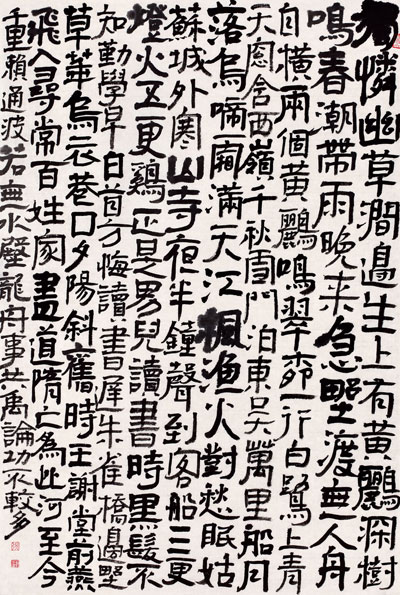 獨憐幽草澗邊生上有黃鸝深樹
鳴春潮帶雨晚來急野渡無人舟
自橫兩個黃鸝鳴翠柳一行白鷺上青
天窗含西嶺千秋雪門泊東吳萬里船月
落烏啼霜滿天江楓漁火對愁眠姑
蘇城外寒山寺夜半鐘聲到客船三更
燈火五更鷄正是男兒讀書時黑髮不
知勤學早白首方悔讀書遲朱雀橋邊野
草華烏衣巷口夕陽斜舊時王謝堂前燕
飛入尋常百姓家盡道隋亡為此河至今
千里賴通波若無水殿龍舟事共禹論功不較多